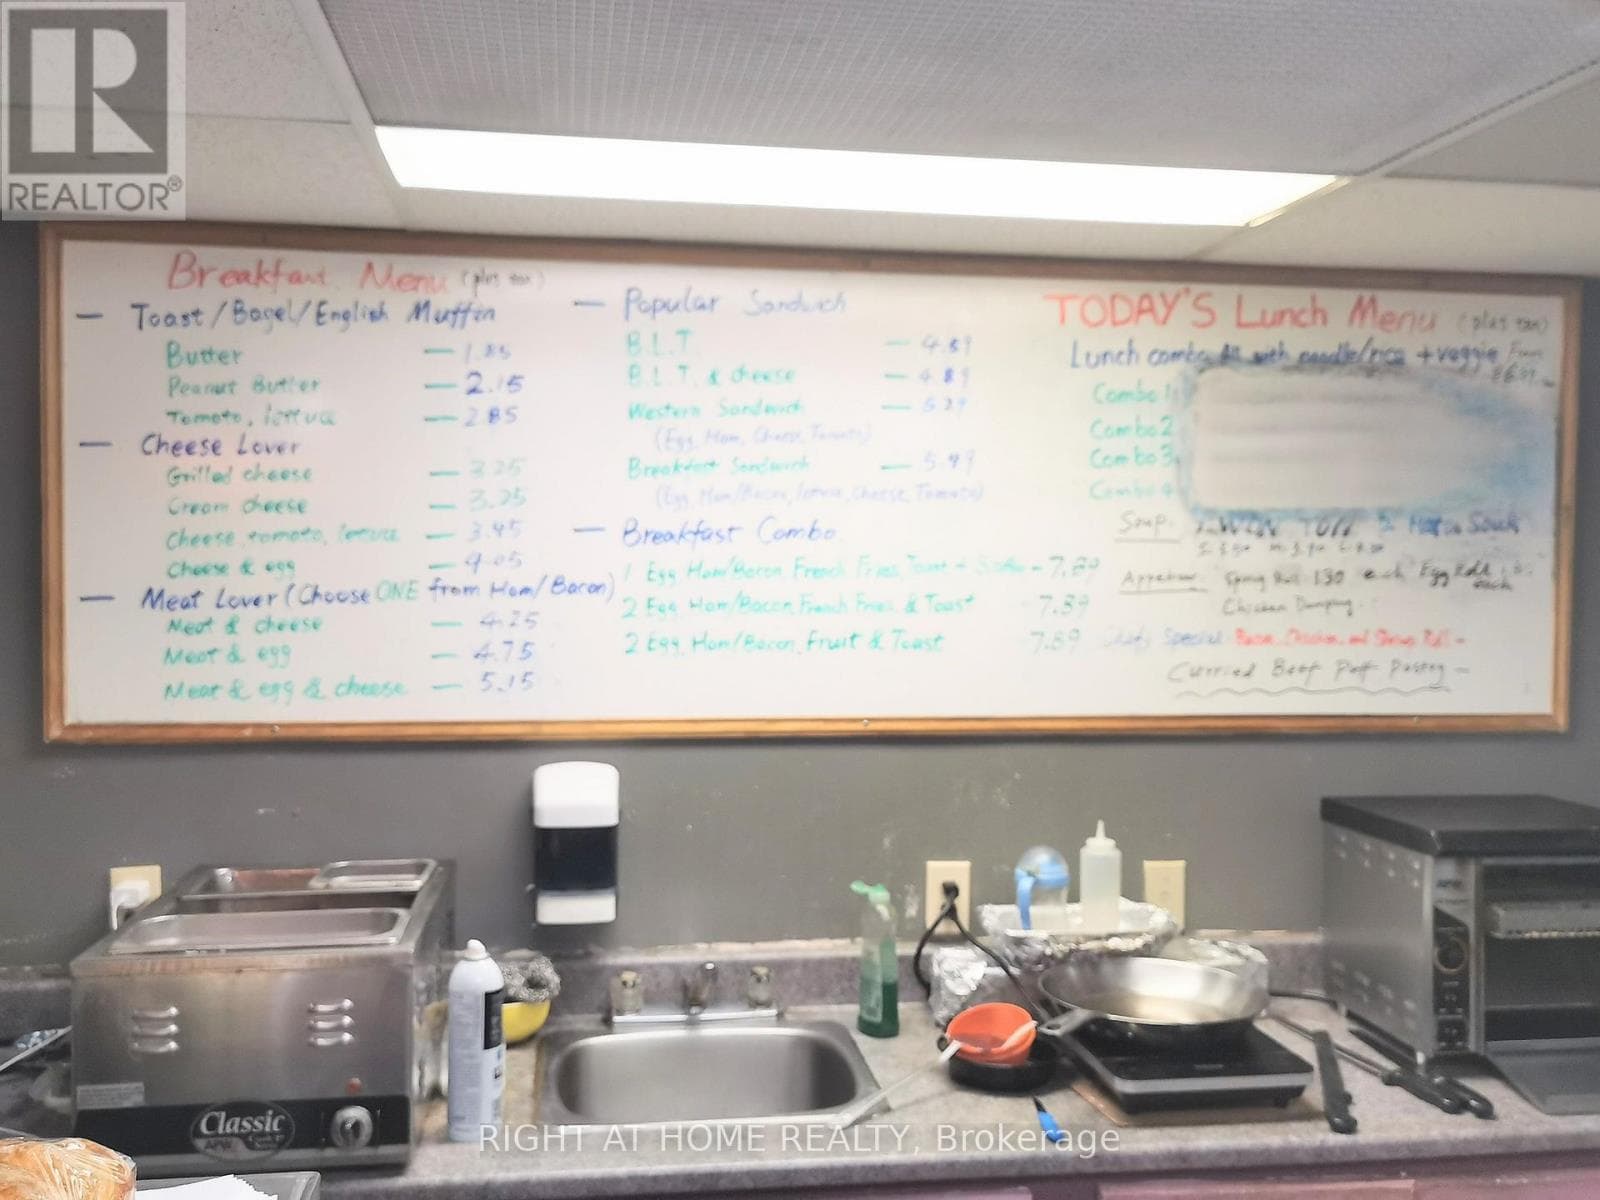 REALTOR®
Breakfast Menu (plus tax)
— Toast/Bagel/English Muffin
Butter — 1.85
Peanut Butter — 2.15
Tomato, lettuce — 2.85
— Cheese Lover
Grilled cheese — 3.25
Cream cheese — 3.25
Cheese, tomato, lettuce — 3.45
Cheese & egg — 4.05
— Meat Lover (Choose ONE from Ham/Bacon)
Meat & cheese — 4.25
Meat & egg — 4.75
Meat & egg & cheese — 5.15
— Popular Sandwich
B.L.T. —
B.L.T. & cheese — 4.89
Western Sandwich —
(Egg, Ham, Cheese, Tomato)
Breakfast Sandwich —
(Egg, Ham/Bacon, lettuce, Cheese, Tomato)
— Breakfast Combo
1 Egg Ham/Bacon, French Fries, Toast +
2 Egg Ham/Bacon, French Fries & Toast
2 Egg, Ham/Bacon, Fruit & Toast
TODAY'S Lunch Menu (plus tax)
Lunch combo All with noodle/rice + veggie From
Combo 1
Combo 2
Combo 3
Combo 4
Soup:
Appetizer Spring Roll each Egg Roll each
Chicken
Chef's Special: Roll —
Curried Beef Puff Pastry —
Classic
RIGHT AT HOME REALTY, Brokerage